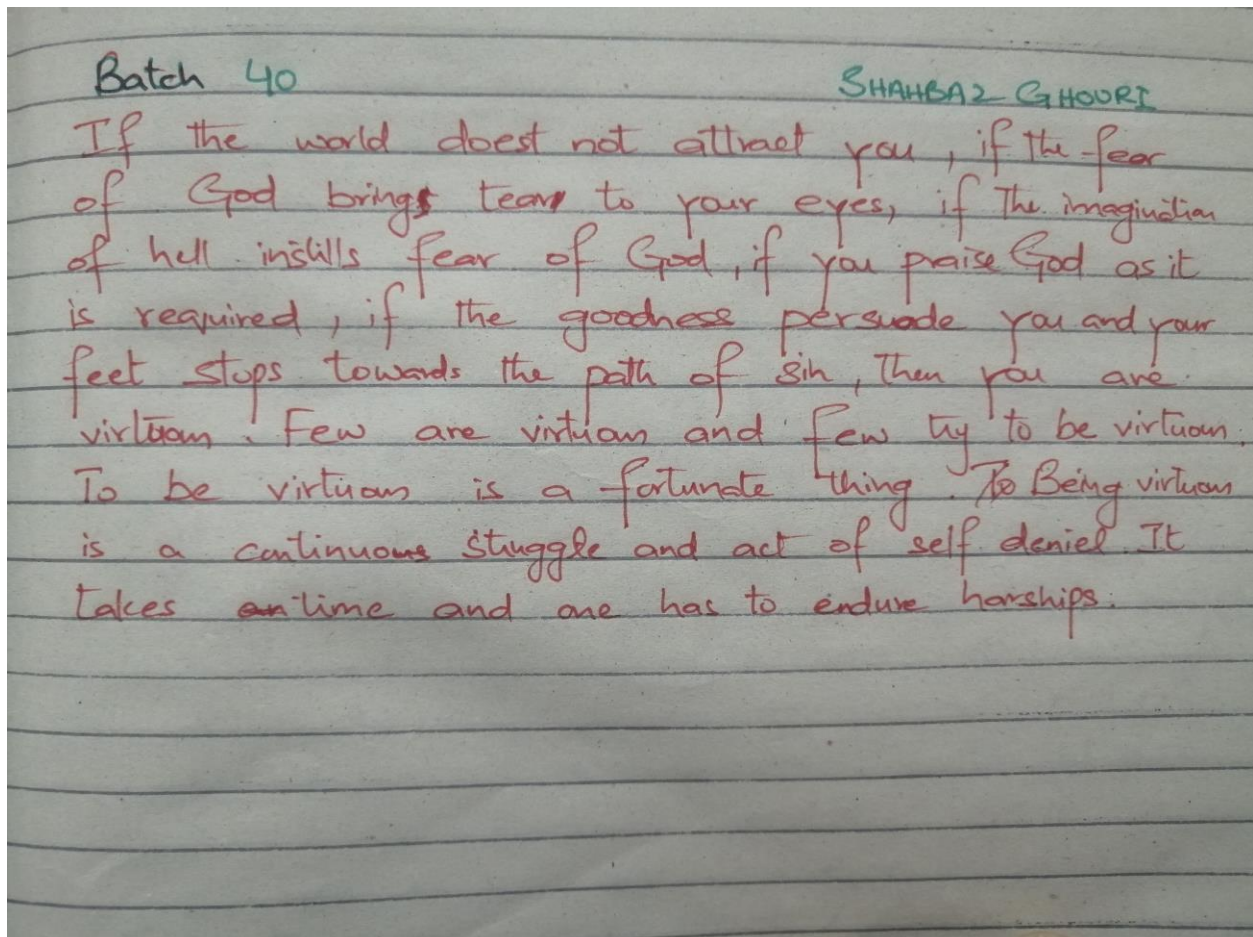 Batch 40 SHAHBAZ GHOORI
If the world doest not attract you, if the fear
of God brings tears to your eyes, if The imagination
of hell instills fear of God, if you praise God as it
is required, if the goodness persuade you and your
feet stops towards the path of sin, Then you are
virtuous. Few are virtuous and few try to be virtuous.
To be virtuous is a fortunate thing. To Being virtuous
is a continuous struggle and act of self deniel. It
takes an time and one has to endure harships.